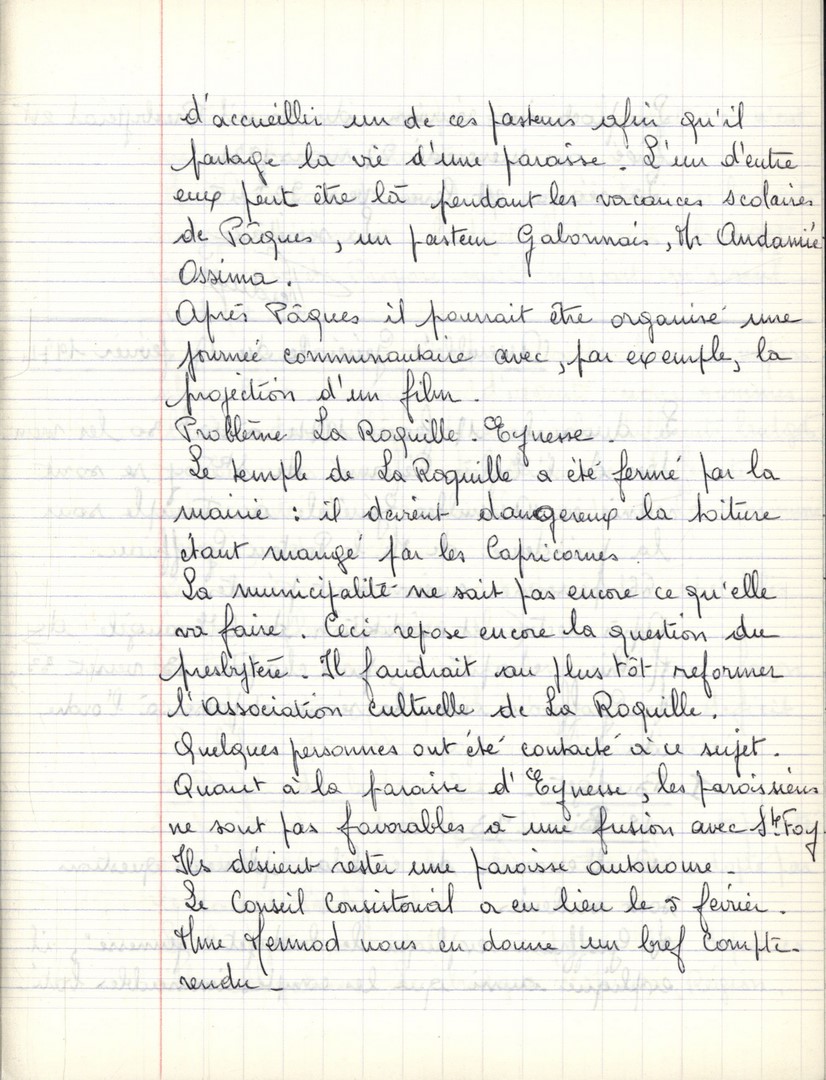 d'accueillir un de ces pasteurs afin qu'il
partage la vie d'une paroisse. L'un d'entre
eux peut être là pendant les vacances scolaires
de Pâques, un pasteur Gabonnais, Mr Andamié
Ossima.
Après Pâques il pourrait être organisé une
journée communautaire avec, par exemple, la
projection d'un film.
Problème La Roquille. Eynesse.
Le temple de La Roquille a été fermé par la
mairie : il devient dangereux la toiture
étant mangé par les Capricornes.
La municipalité ne sait pas encore ce qu'elle
va faire. Ceci repose encore la question du
presbytère. Il faudrait au plus tôt reformer
l'Association cultuelle de La Roquille.
Quelques personnes ont été contacté à ce sujet.
Quant à la paroisse d'Eynesse, les paroissiens
ne sont pas favorables à une fusion avec Ste Foy.
Ils désirent rester une paroisse autonome.
Le Conseil Consistorial a eu lieu le 5 février.
Mme Mermod nous en donne un bref compte-
rendu _